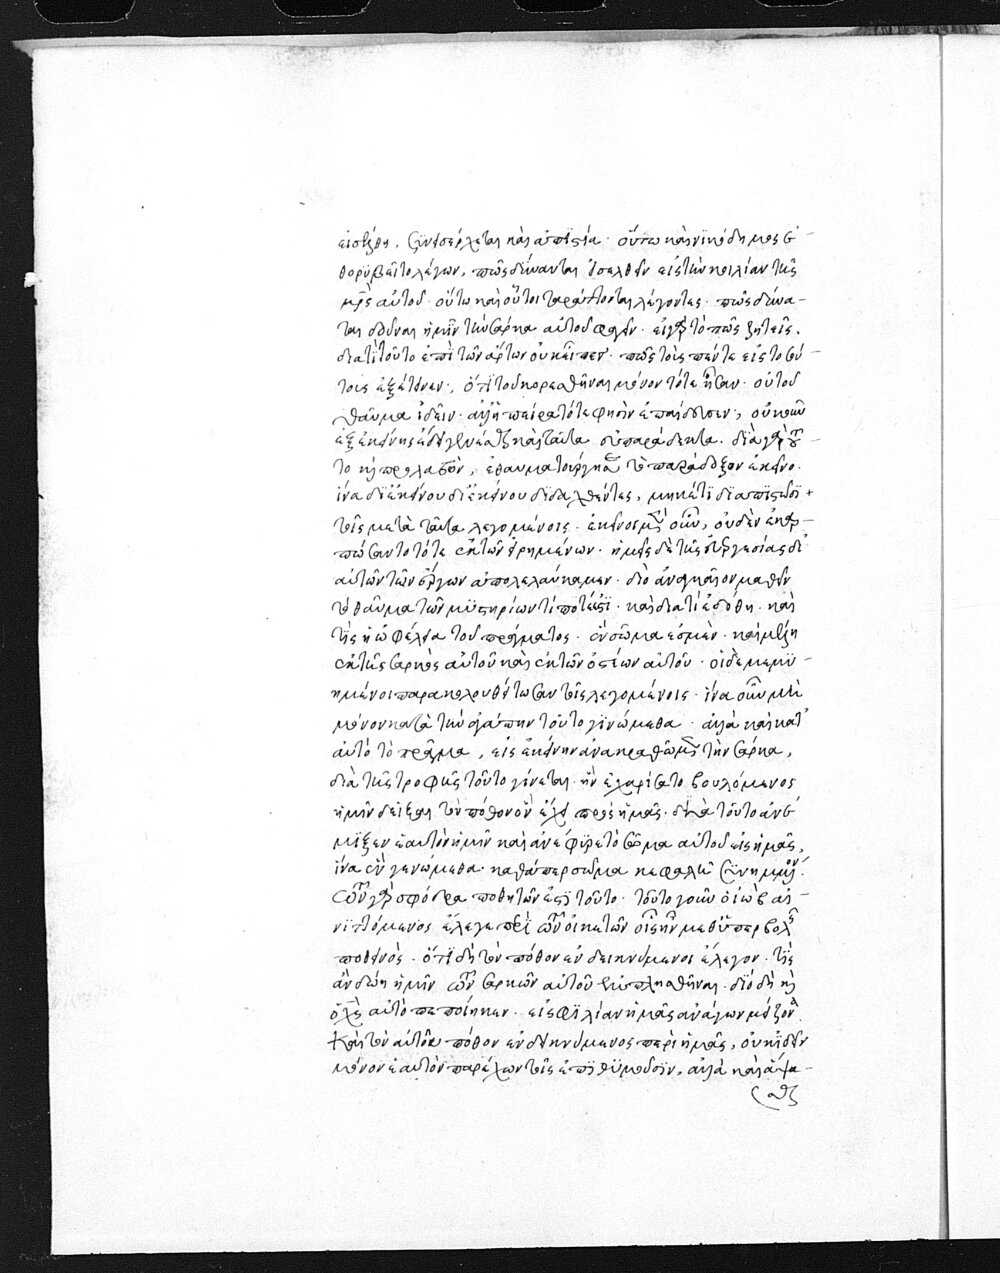 εἰσέλθη, συνεισέρχεται καὶ ἀπιστία. οὕτω καὶ νικόδημος ἐ-
θορυβεῖτο λέγων, πῶς δύναται εἰσελθεῖν εἰς τὴν κοιλίαν τῆς
μρ̅ς αὐτοῦ. οὕτω καὶ οὗτοι ταράττονται λέγοντες. πῶς δύνα-
ται δοῦναι ἡμῖν τὴν σάρκα αὐτοῦ φαγεῖν. εἰ γὰρ τὸ πῶς ζητεῖς.
διατί τοῦτο ἐπὶ τῶν ἄρτων οὐκ εἶπες. πῶς τοὺς πέντε εἰς τοσού-
τους ἐξέτεινεν, ὅτι τοῦ κορεσθῆναι μόνον τότε ἦσαν. οὐ τοῦ
θαῦμα ἰδεῖν. ἀλλ' ἡ πεῖρα τότε φησὶν ἐπαίδευσεν, οὐκοῦν
ἐξ ἐκείνης ἐδει γενέσθαι καὶ ταῦτα εὐπαράδεκτα. διὰ γὰρ τοῦ-
το καὶ προλαβὼν, ἐθαυματούργησε τὸ παράδοξον ἐκεῖνο.
ἵνα δι' ἐκείνου διδαχθέντες, μηκέτι διαπιστῶσι
τοῖς μετὰ ταῦτα λεγομένοις. ἐκεῖνοι μὲν οὖν, οὐδὲν ἐκαρ-
πώσαντο τότε ἐκ τῶν εἰρημένων. ἡμεῖς δὲ τῆς εὐεργεσίας δι'
αὐτῶν τῶν ἔργων ἀπολελαύκαμεν. διὸ ἀναγκαῖον μαθεῖν
τὸ θαῦμα τῶν μυστηρίων τί ποτέ ἐστι. καὶ διατί ἐδόθη. καὶ
τίς ἡ ὠφέλεια τοῦ πράγματος. ἓν σῶμα ἐσμὲν. καὶ μέλη
ἐκ τῆς σαρκὸς αὐτοῦ καὶ ἐκ τῶν ὀστέων αὐτοῦ. οἱ δὲ μεμυ-
ημένοι παρακολουθείτωσαν τοῖς λεγομένοις. ἵνα οὖν μὴ
μόνον κατὰ τὴν ἀγάπην τοῦτο γινώμεθα. ἀλλὰ καὶ κατ'
αὐτὸ τὸ πρᾶγμα, εἰς ἐκείνην ἀνακραθῶμεν τὴν σάρκα,
διὰ τῆς τροφῆς τοῦτο γίνεται. ἣν ἐχαρίσατο βουλόμενος
ἡμῖν δεῖξαι τὸν πόθον ὃν ἔχει πρὸς ἡμᾶς. διὰ τοῦτο ἀνέ-
μιξεν ἑαυτὸν ἡμῖν καὶ ἀνέφυρε τὸ σῶμα αὐτοῦ εἰς ἡμᾶς,
ἵνα ἓν γενώμεθα. καθάπερ σῶμα κεφαλῇ συνημμένον.
τῶν γὰρ σφόδρα ποθητῶν ἐστὶ τοῦτο. τοῦτο γοῦν ὁ ἰὼβ αἰ-
νιττόμενος ἔλεγε περὶ τῶν οἰκετῶν οἷς ἦν μεθ' ὑπερβολῆς
ποθεινὸς. ὅτι δὴ τὸν πόθον ἐνδεικνύμενοι ἔλεγον. τίς
ἂν δώη ἡμῖν τῶν σαρκῶν αὐτοῦ ἐμπλησθῆναι. διὸ δὴ καὶ
ὁ χς̅ αὐτὸ πεποίηκεν. εἰς φιλίαν ἡμᾶς ἀνάγων μείζονα.
καὶ τὸν αὐτοῦ πόθον ἐνδεικνύμενος περὶ ἡμᾶς, οὐκ ἰδεῖν
μόνον ἑαυτὸν παρέχων τοῖς ἐπιθυμοῦσιν, ἀλλὰ καὶ ἅψα-
σθαι